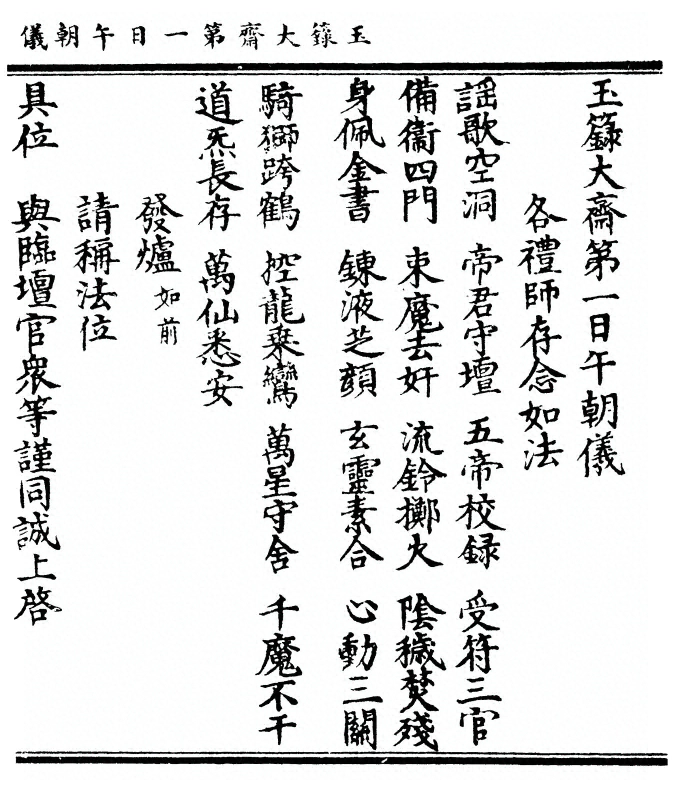 玉籙大齋第一日午朝儀
玉籙大齋第一日午朝儀
各禮師存念如法
謡歌空洞 帝君守壇 五帝校録 受符三官
備衞四門 束魔去奸 流鈴擲火 陰穢焚殘
身佩金書 錬液芝顔 玄靈素合 心動三關
騎獅跨鶴 控龍乗鸞 萬星守舍 千魔不干
道炁長存 萬仙悉安
發爐 如前
請稱法位
具位 與臨壇官衆等謹同誠上啓